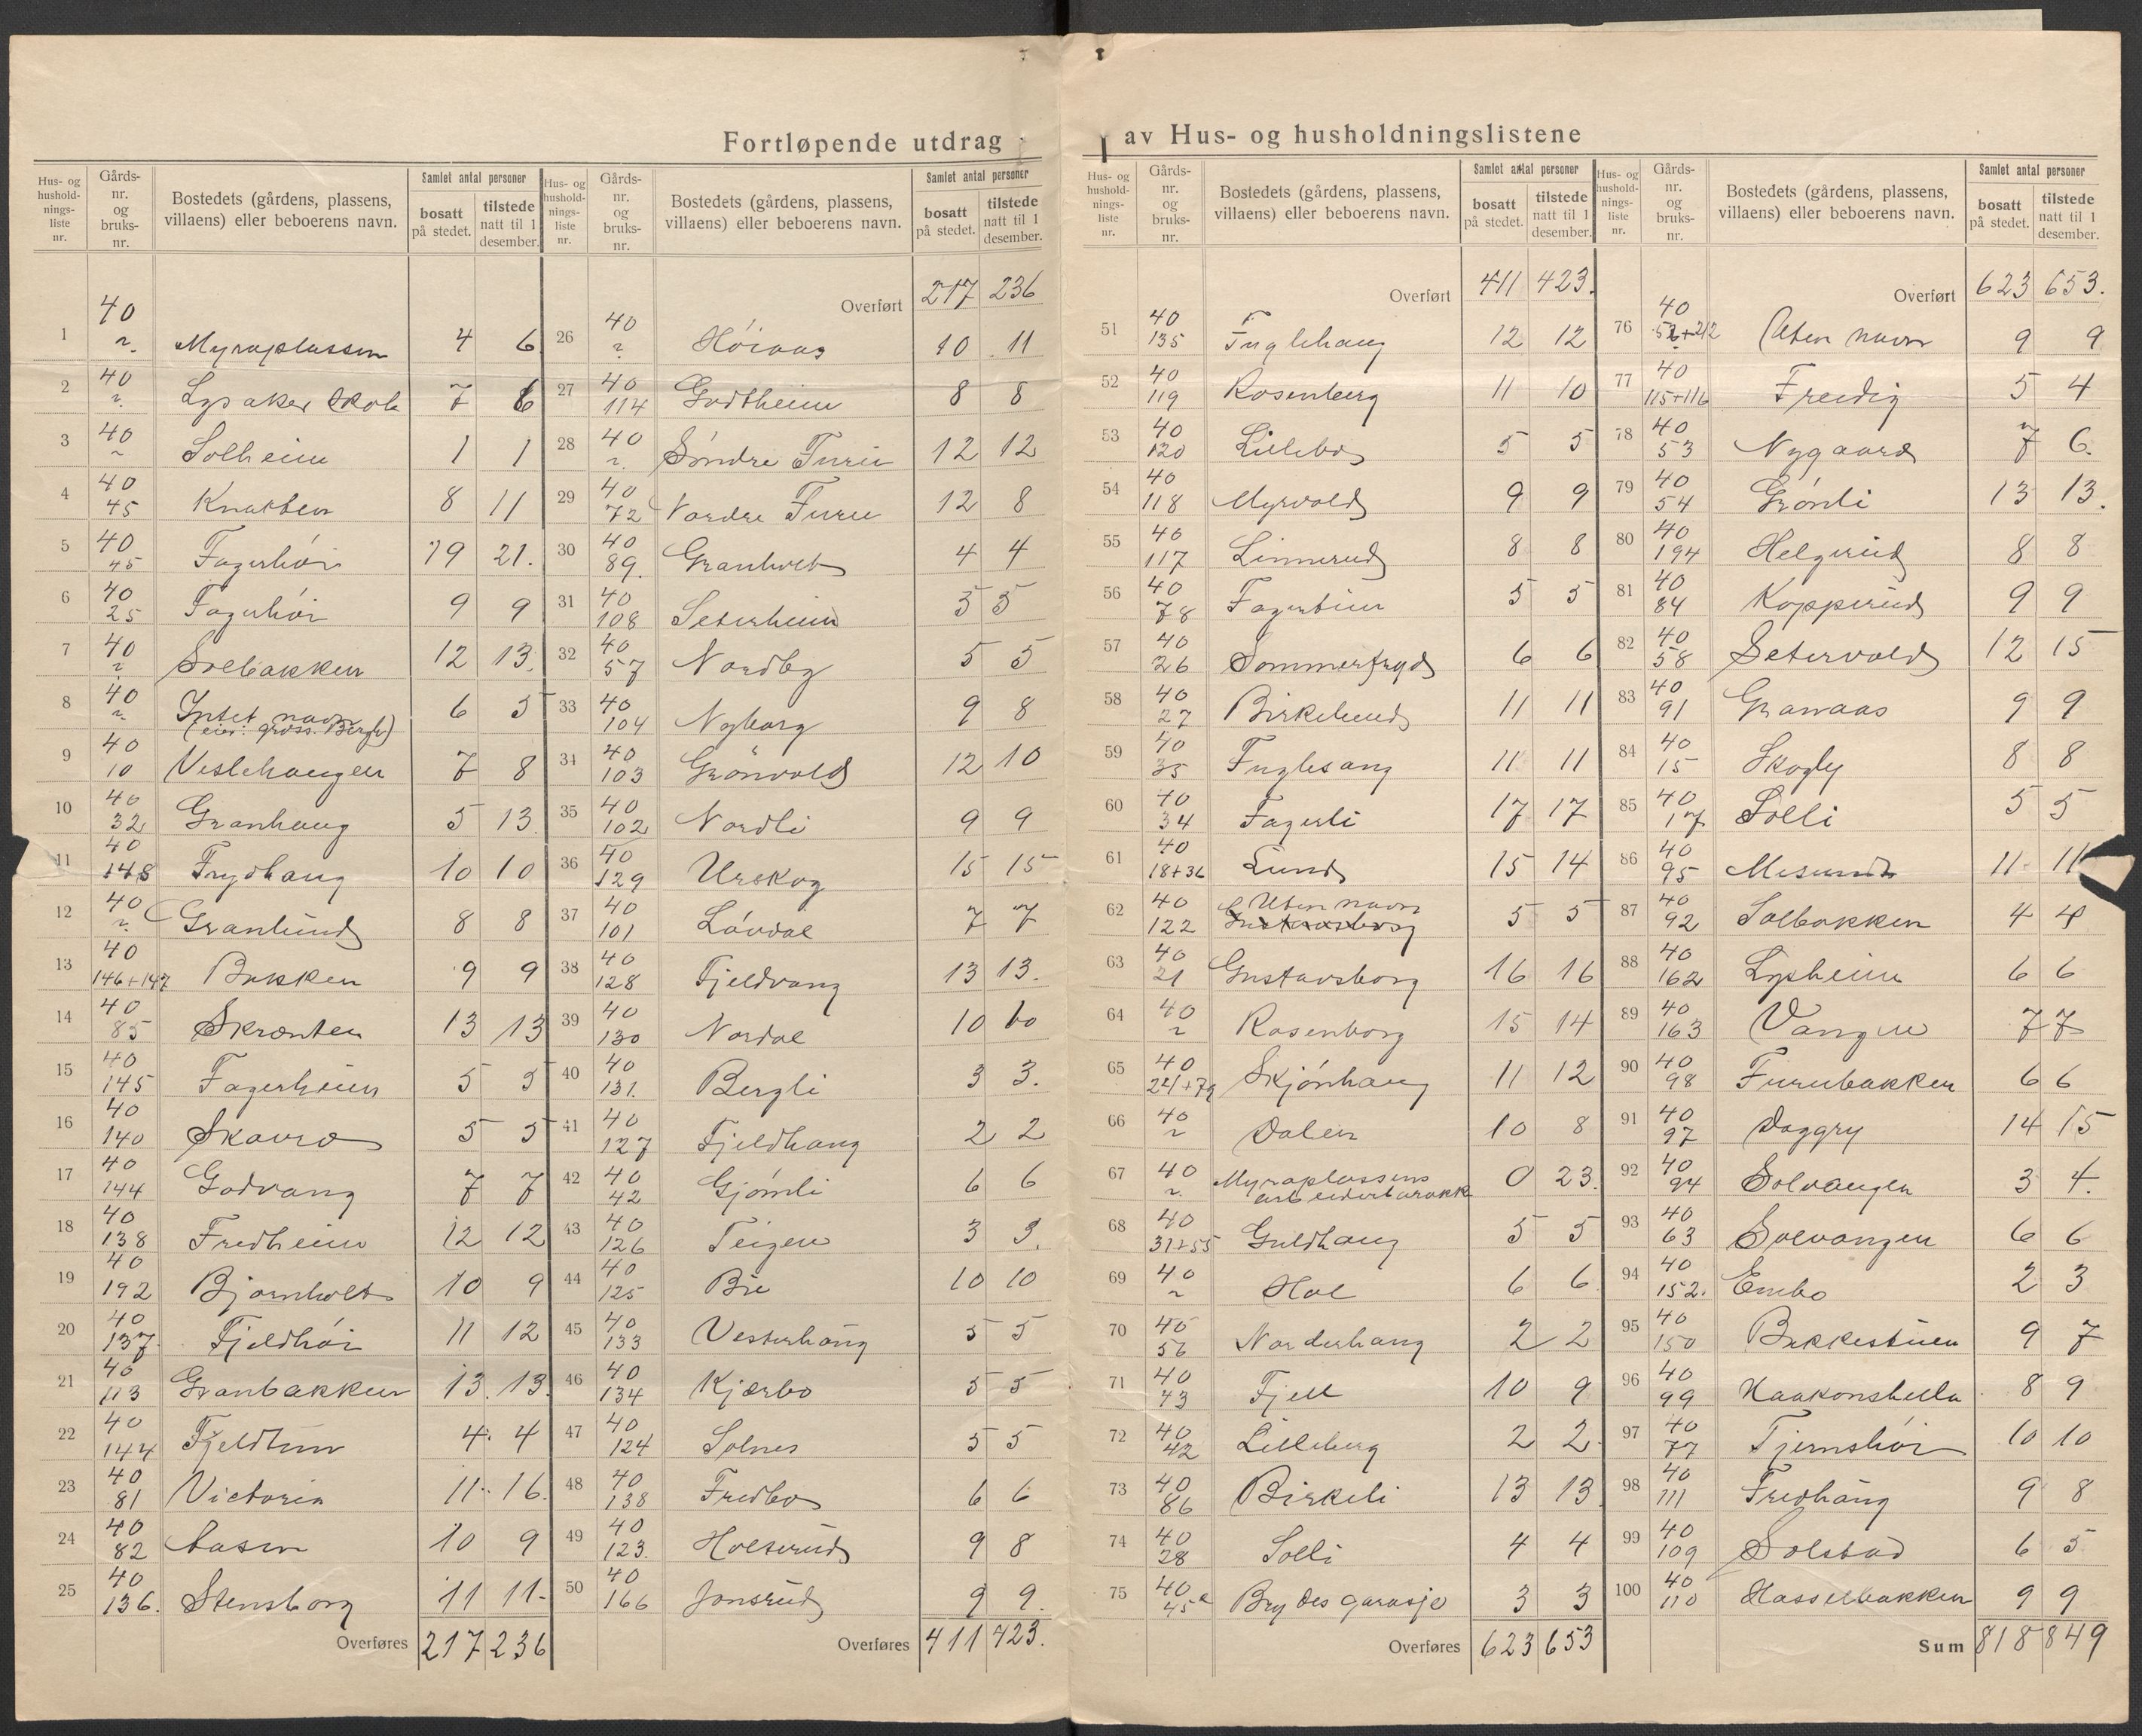 Fortløpende utdrag av Hus- og husholdningslistene
Hus- og hushold-nings-liste nr. Gårds-nr. og bruks-nr. Bostedets (gårdens, plassens, villaens) eller beboerens navn. Samlet antal personer bosatt på stedet. tilstede natt til 1 desember.
1 40 ~ Myraplassen 4 6
2 40 ~ Lysaker skole 7 6
3 40 ~ Solheim 1 1
4 40 45 Knatten 8 11
5 40 45 Fagerhøi 19 21.
6 40 25 Fagerhøi 9 9
7 40 ~ Solbakken 12 13.
8 40 ~ Intet navn 6 5
(eier: gross. Bergh)
9 40 10 Veslehaugen 7 8
10 40 32 Granhaug 5 13.
11 40 148 Frydhaug 10 10
12 40 ~ Granlund 8 8
13 40 146+147 Bakken 9 9
14 40 85 Skrænten 13 13
15 40 145 Fagerheim 5 5
16 40 140 Skavro 5 5
17 40 144 Godvang 7 7
18 40 138 Fredheim 12 12
19 40 192 Bjørnholt 10 9
20 40 137 Fjeldhøi 11 12
21 40 113 Granbakken 13. 13.
22 40 144 Fjeldtun 4. 4
23 40 81 Victoria 11. 16.
24 40 82 Aasen 10 9
25 40 136. Stensborg 11 11.
Overføres 217 236
Hus- og hushold-nings-liste nr. Gårds-nr. og bruks-nr. Bostedets (gårdens, plassens, villaens) eller beboerens navn. Samlet antal personer bosatt på stedet. tilstede natt til 1 desember.
Overført 217 236
26 40 ~ Høiaas 10 11
27 40 114 Godtheim 8 8
28 40 ~ Søndre Furu 12 12
29 40 72 Nordre Furu 12 8
30 40 89. Granholt 4 4
31 40 108 Seterheim 5 5
32 40 57 Nordby 5 5
33 40 104 Nyborg 9 8
34 40 103 Grönvold 12 10
35 40 102 Nordli 9 9
36 40 129 Urskog 15 15
37 40 101 Løvdal 7 7
38 40 128 Fjeldvang 13 13.
39 40 130 Nordal 10 10
40 40 131. Bergli 3 3.
41 40 127 Fjeldhaug 2 2
42 40 42 Gjømli 6 6
43 40 126 Teigen 3 3.
44 40 125 Bie 10 10
45 40 133 Vesterhaug 5 5
46 40 134 Kjærbo 5 5
47 40 124 Solnes 5 5
48 40 138 Fredbo 6 6
49 40 123. Holserud 9 8
50 40 166 Jonsrud 9 9.
Overføres 411 423.
Hus- og hushold-nings-liste nr. Gårds-nr. og bruks-nr. Bostedets (gårdens, plassens, villaens) eller beboerens navn. Samlet antal personer bosatt på stedet. tilstede natt til 1 desember.
Overført 411 423.
51 40 135 Fuglehaug 12 12
52 40 119 Rosenberg 11 10
53 40 120 Lillebo 5 5
54 40 118 Myrvold 9 9
55 40 117 Linnerud 8 8
56 40 78 Fagertun 5 5
57 40 26 Sommerfryd 6 6
58 40 27 Birkelund 11 11
59 40 35 Fuglesang 11 11
60 40 34 Fagerli 17 17
61 40 18+36 Lund 15 14
62 40 122 Uten navn 5 5
Gustavsborg
63 40 21 Gustavsborg 16 16
64 40 ~ Rosenborg 15 14
65 40 24+79 Skjønhaug 11 12
66 40 ~ Dalen 10 8
67 40 ~ Myraplassens 0 23.
arbeiderbarakk
68 40 31+55 Guldhaug 5 5
69 40 ~ Hol 6 6
70 40 56 Norderhaug 2 2
71 40 43 Fjell 10 9
72 40 42 Lilleberg 2 2.
73 40 86 Birkeli 13 13
74 40 28 Solli 4 4
75 40 45a Brydes garasje 3 3
Overføres 623 653
Hus- og hushold-nings-liste nr. Gårds-nr. og bruks-nr. Bostedets (gårdens, plassens, villaens) eller beboerens navn. Samlet antal personer bosatt på stedet. tilstede natt til 1 desember.
Overført 623 653.
76 40 52+212 Uten navn 9 9
77 40 115+116 Fredig 5 4
78 40 53 Nygaard 7 6.
79 40 54 Grønli 13 13.
80 40 194 Helgerud 8 8
81 40 84 Kopperud 9 9
82 40 58 Setervold 12 15
83 40 91 Granaas 9 9
84 40 15 Skogly 8 8
85 40 17 Solli 5 5
86 40 95 Mesund 11 11
87 40 92 Solbakken 4 4
88 40 162 Lysheim 6 6
89 40 163 Vangen 7 7
90 40 98 Furubakken 6 6
91 40 97 Daggry 14 15
92 40 94 Solvangen 3 4.
93 40 63 Solvangen 6 6
94 40 152. Embo 2 3
95 40 150 Bakkestuen 9 7
96 40 99 Haakonshella 8 9
97 40 77 Tjernshøi 10 10
98 40 111 Fredhaug 9 8
99 40 109 Solstad 6 5
100 40 110 Hasselbakken 9 9
Sum 818 849